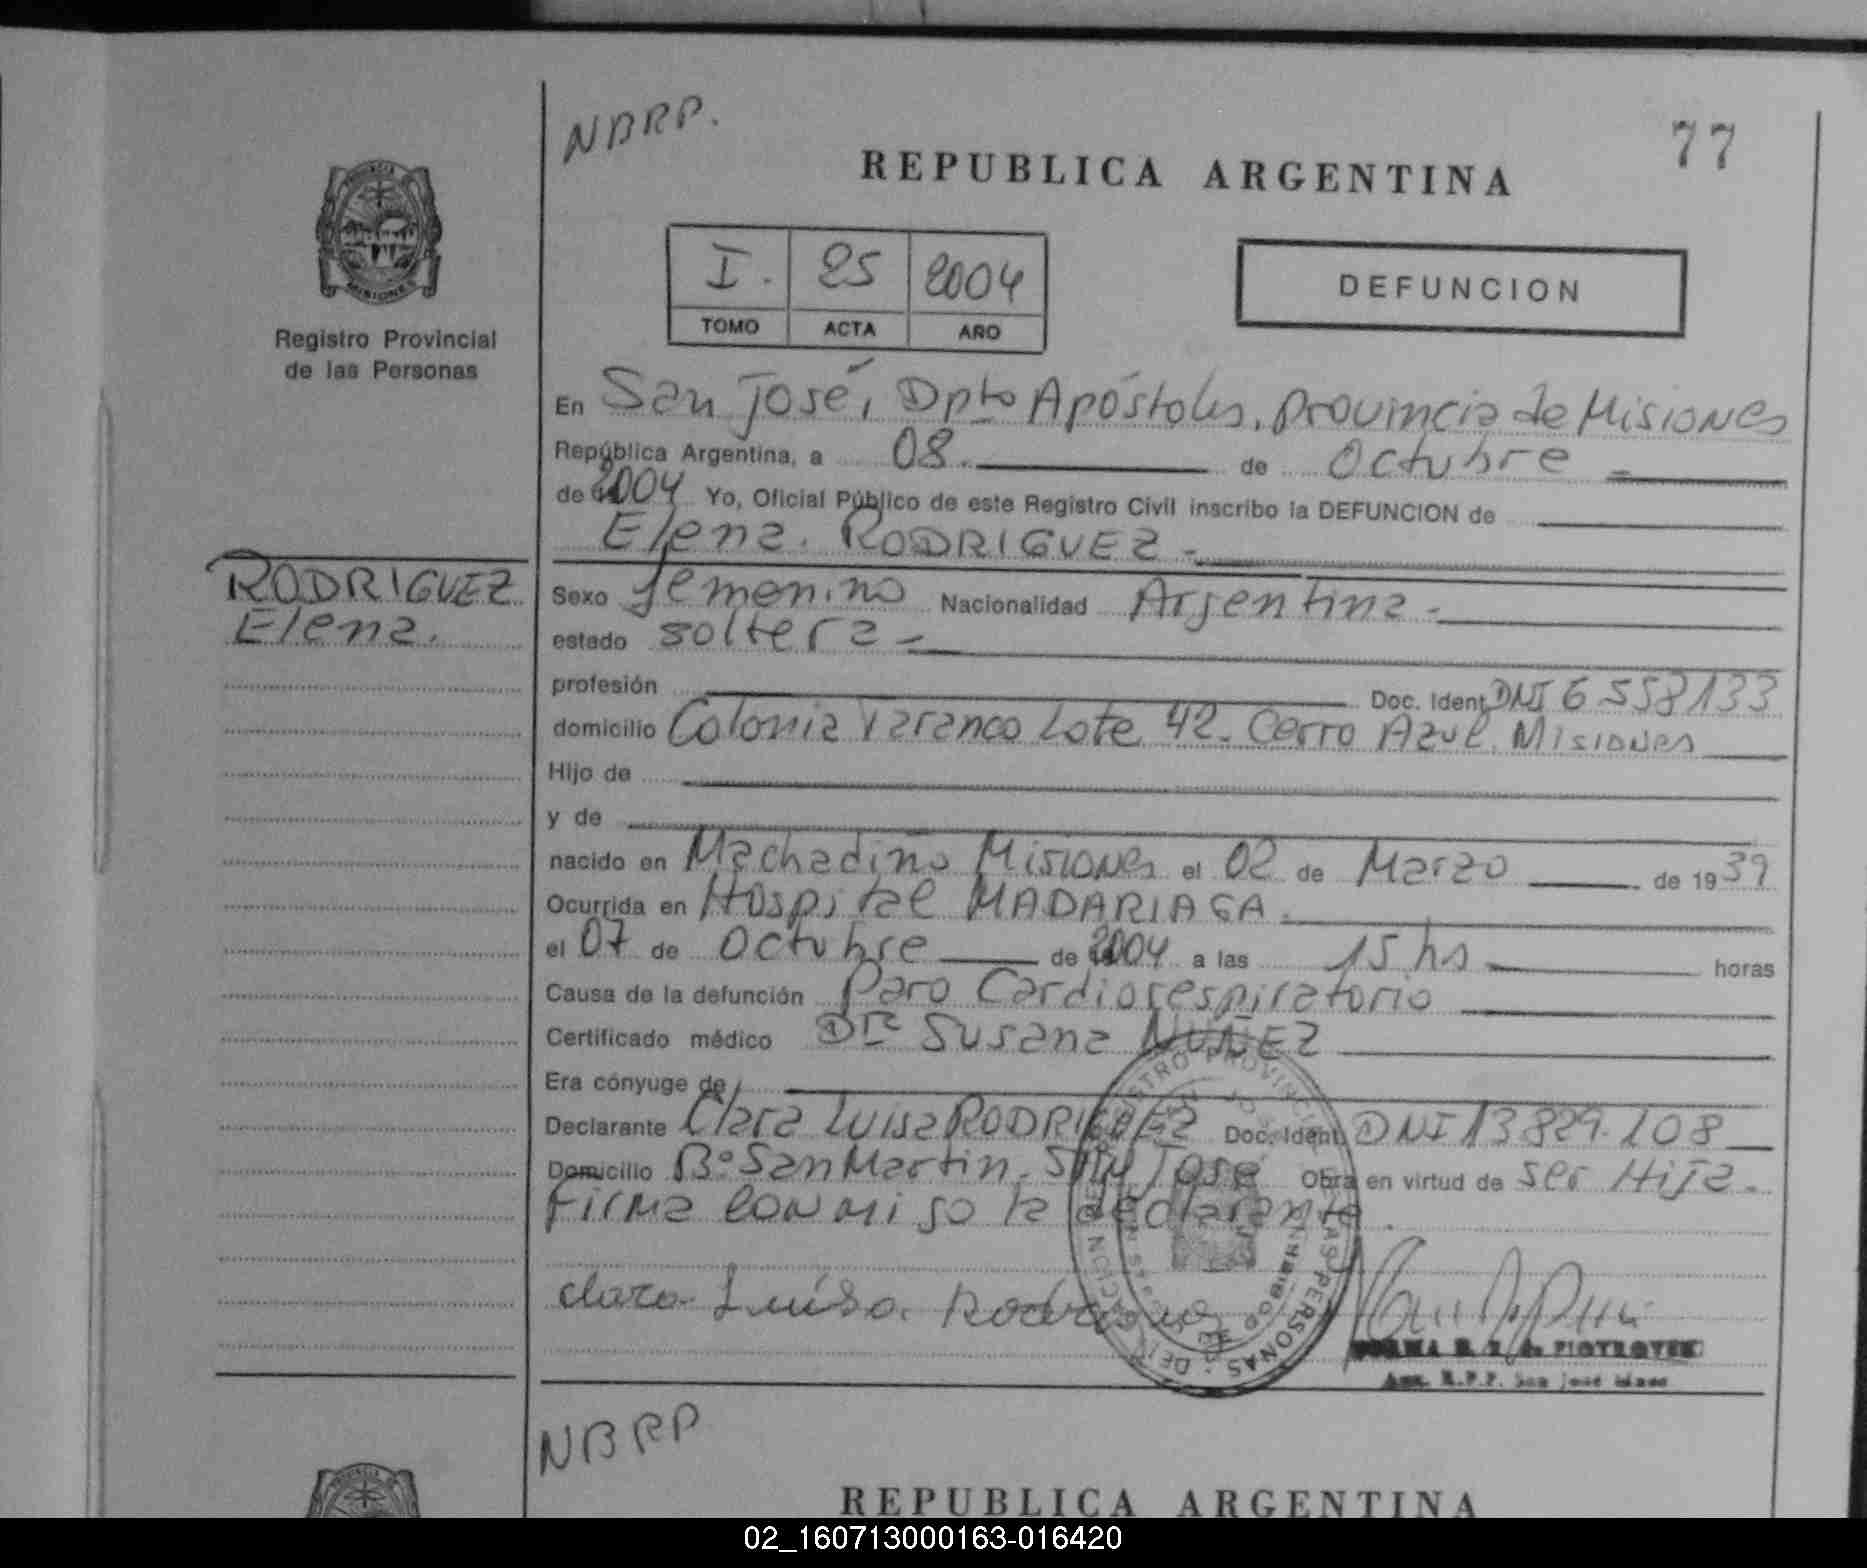 NBRP.
77
REPUBLICA ARGENTINA
I. 25 2004
TOMO ACTA AÑO
DEFUNCION
MISIONES
Registro Provincial
de las Personas
En San José, Dpto Apóstoles, Provincia de Misiones
República Argentina, a 08. de Octubre
de 2004 Yo, Oficial Público de este Registro Civil inscribo la DEFUNCION de
Elena. RODRIGUEZ -
RODRIGUEZ
Elena.
Sexo femenino Nacionalidad Argentina -
estado soltera -
profesión Doc. Ident DNI 6 558133
domicilio Colonia Taranco Lote 42. Cerro Azul. Misiones
Hijo de
y de
nacido en Machadiño Misiones el 02 de Marzo de 1939
Ocurrida en Hospital MADARIAGA.
el 07 de Octubre de 2004 a las 15 hs horas
Causa de la defunción Paro Cardiorespiratorio
Certificado médico Dra Susana NUÑEZ
Era cónyuge de
Declarante Clara Luisa RODRIGUEZ Doc. Ident. DNI 13829.108
Domicilio B° San Martin. San José Obra en virtud de ser Hija.
Firma conmigo la declarante.
Clara Luisa Rodriguez
PIOTROVSKI
Aux. R.P.P. San José Mnes
NBRP
REPUBLICA ARGENTINA
02_160713000163-016420